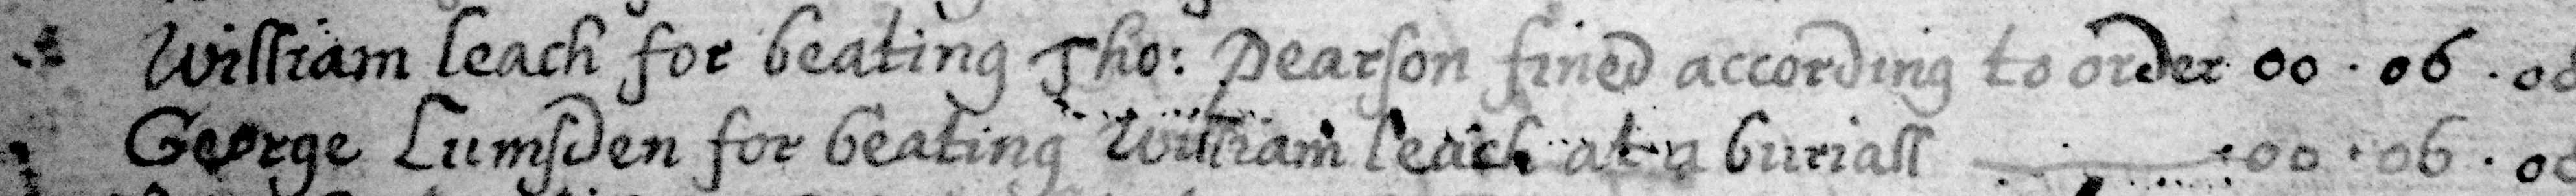 William leach for beating Tho: Pearson fined according to order 00 . 06 . 00
George Lumsden for beating William leach at a buriall 00 . 06 . 00